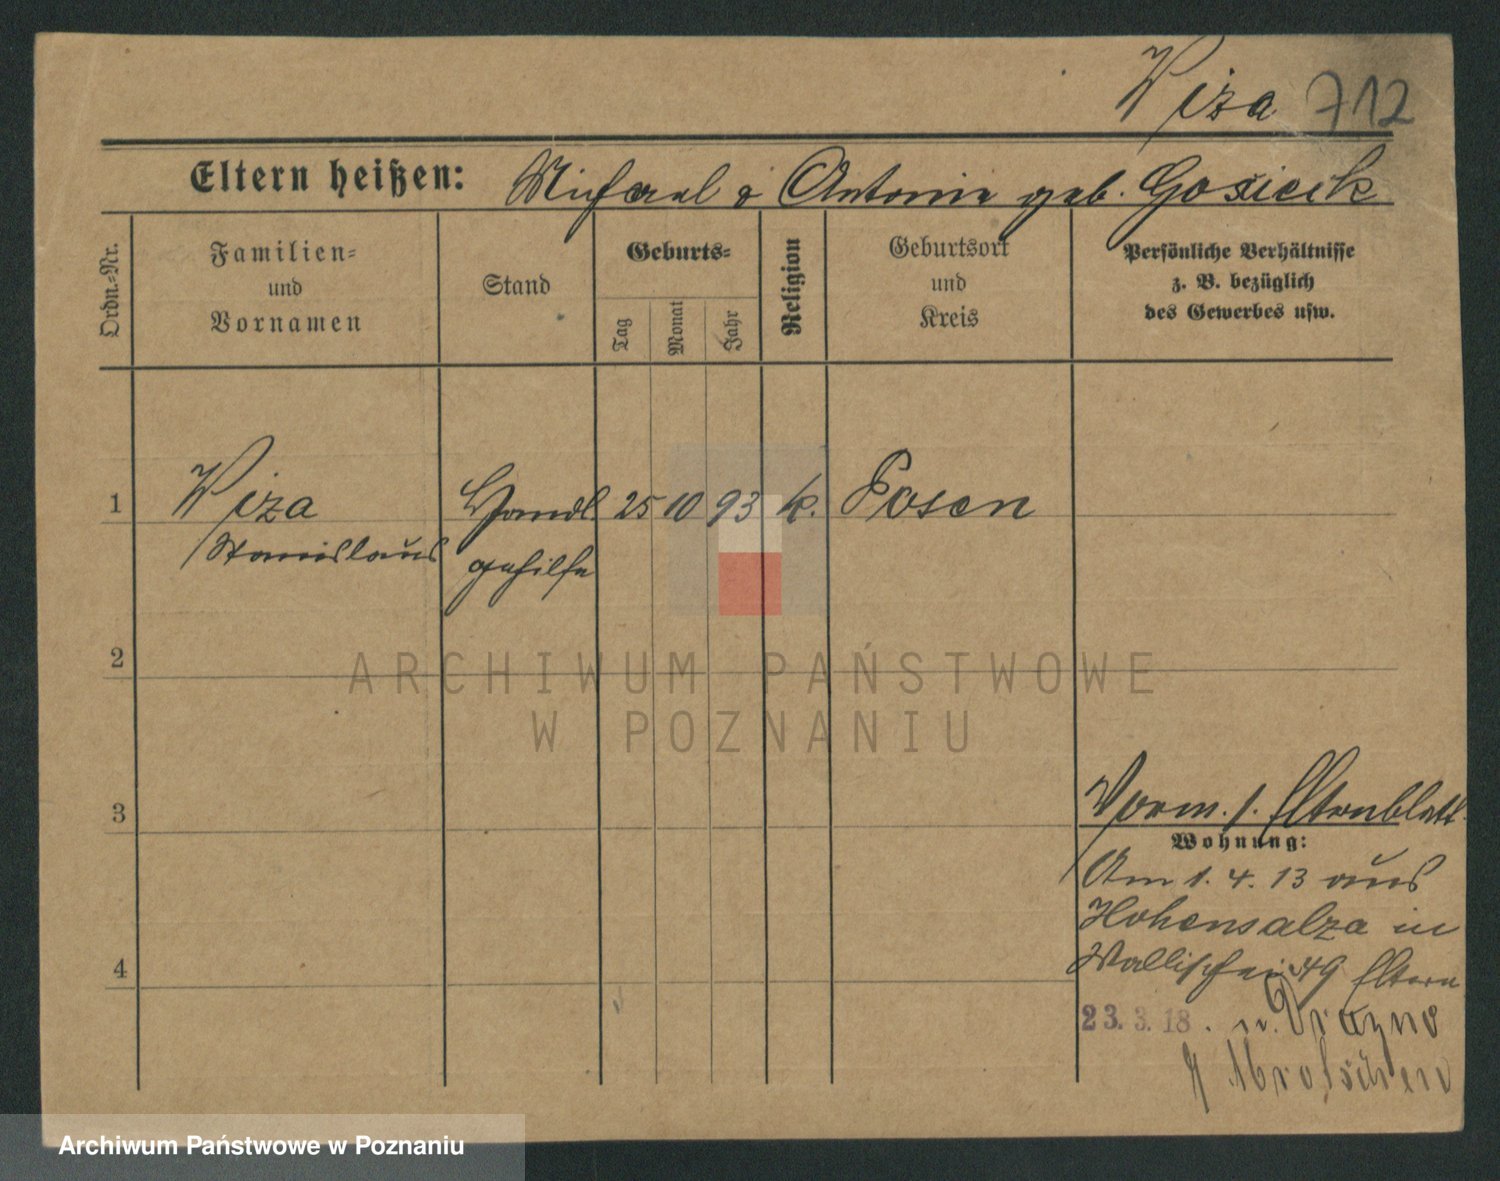 Wiza 712
Eltern heißen: Michael & Antonie geb. Gosicik
Ordn.=Nr.
Familien=
und
Vornamen
Stand
Geburts=
Tag
Monat
Jahr
Religion
Geburtsort
und
Kreis
Persönliche Verhältnisse
z. B. bezüglich
des Gewerbes usw.
1 Wiza Handl. 25 10 93 k. Posen
Stanislaus gehilfe
2
ARCHIWUM PAŃSTWOWE
W POZNANIU
3
Vorm. s. Elternblatt
Wohnung:
Am 1. 4. 13 aus
Hohensalza in
4
Wallischei 49 Eltern
23. 3. 18. n.
Archiwum Państwowe w Poznaniu